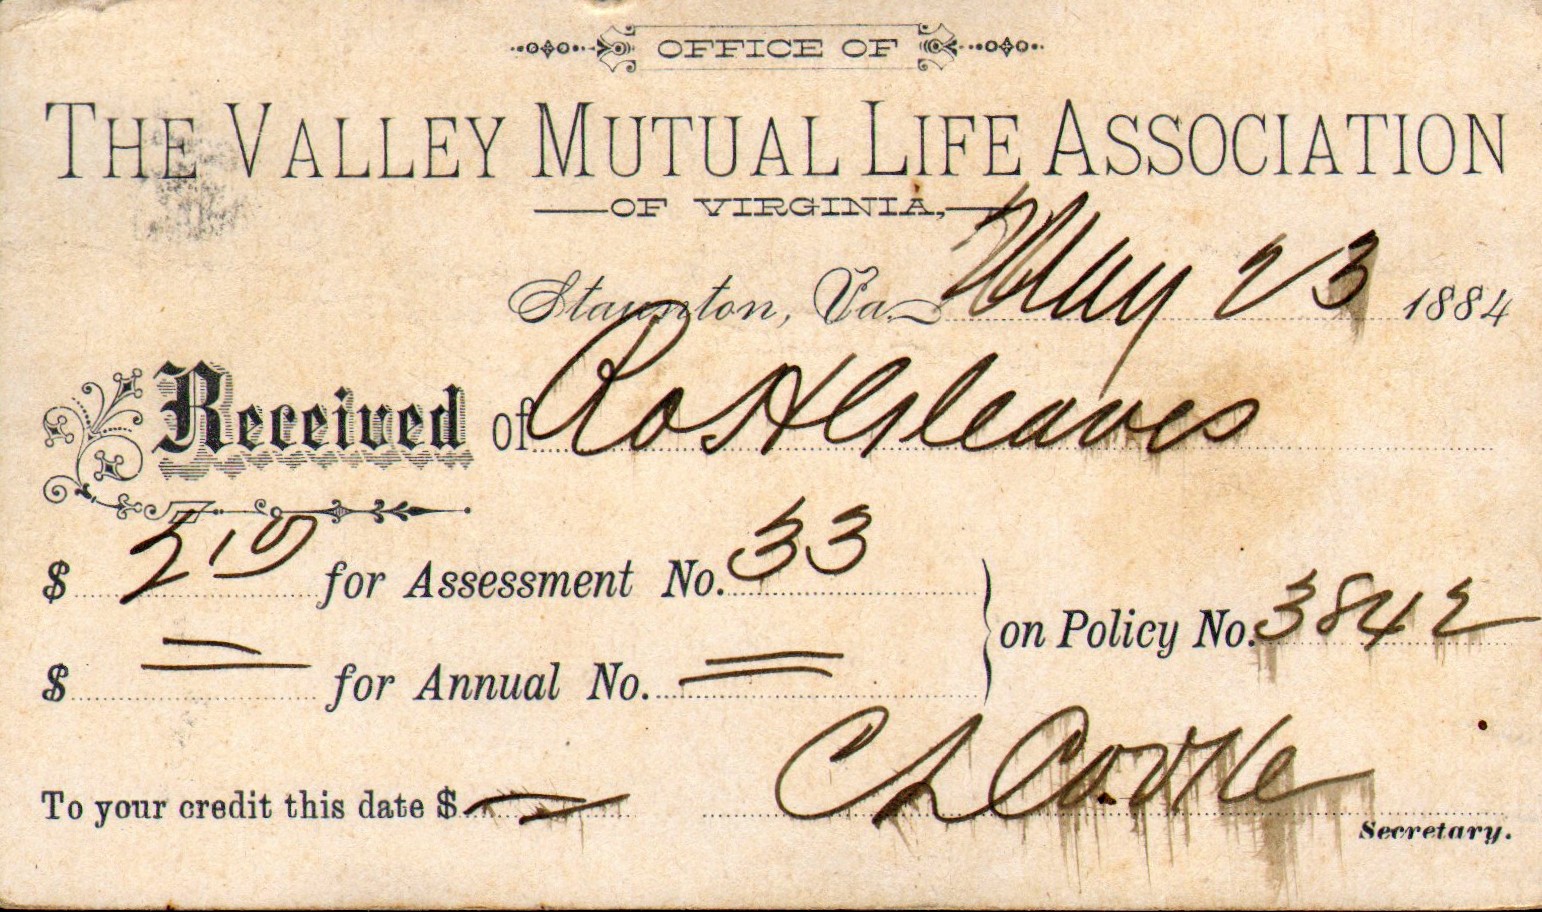 OFFICE OF
THE VALLEY MUTUAL LIFE ASSOCIATION
OF VIRGINIA,
Staunton, Va. May 23 1884
Received of Ro H Gleaves
$ for Assessment No. 33
on Policy No. 3842
$ = for Annual No. =
To your credit this date $ C L Cooke
Secretary.